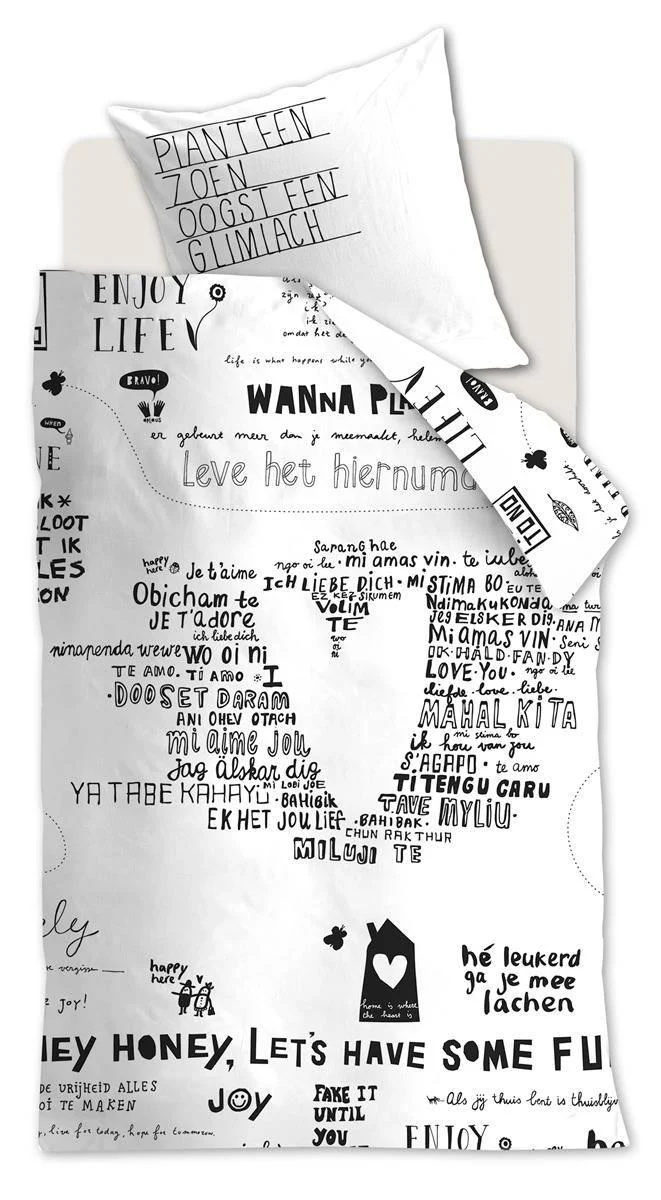 PLANT EEN
ZOEN
OOGST EEN
GLIMLACH
ENJOY
LIFE
zijn
ik
omdat het de
life is what happens while yo
BRAVO!
WANNA PLA
LIFE
BRAVO!
er gebeurt meer dan je meemaakt, helem
Leve het hiernuma
WHEN
NE
IK*
LOOT
T IK
LES
ON
Saranghae
happy here
Je t'aime
ngo oi lei · mi amas vin · te iube
ICH LIEBE DICH · Mi STIMA BO ·
EU TE
Obicham te
EZ KEZ SIKUMEM
VOLIM
TE
Ndimakukonda
JE T'ADORE
JEG ELSKER DIG
ANA M
ich liebe dich
wo
oi
ni
Mi amas VIN · Seni S
ninapenda wewe wo oi ni
IK·HÂLD·FAN·DY
TE AMO. Ti AMO * I
LOVE·YOU · ngo oi lei
·DOOSET DARAM
liefde · love · liebe ·
ANI OHEV OTACH
MAHAL KiTA
mi aime jou
mi stima bo
ik hou van jou
Jag Älskar dig
S'AGAPO · te amo
YA TABE KAHAYU · MI LOBI JOE
·BAHIBIK
TI TENGU CARU
TAVE MYLIU ·
EK HET JOU LIEF · BAHIBAK ·
CHUN RAK THUR
MILUJI TE
ely
happy
here
home is where
the heart is
hé leukerd
ga je mee
lachen
JOY!
HEY HONEY, LET'S HAVE SOME FU
DE VRIJHEID ALLES
TE MAKEN
JOY
FAKE IT
UNTIL
YOU
Als jij thuis bent is thuisblijv
live for today, hope for tomorrow.
ENJOY